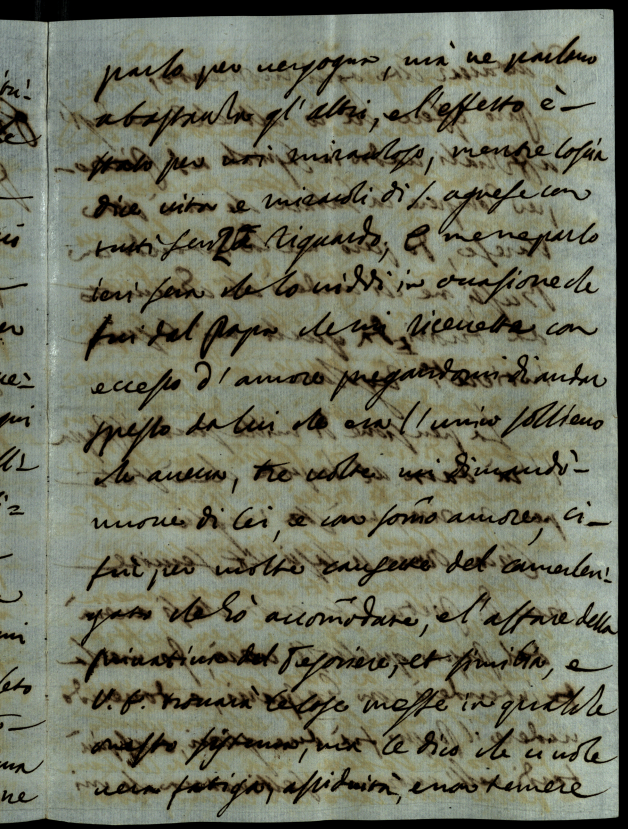 parlo per vergogna, mà ne parlano
abastanza gl'altri, e l'effetto è
stato per noi miracoloso, mentre Coscia
dice vita e miracoli di S. Agnese con
tutti senza riguardo, e me ne parlò
ieri sera che lo viddi in occasione che
fui dal Papa che mi ricevette con
eccesso d'amore pregandomi di andar
spesso da lui che era l'unico sollievo
che aveva, tre volte mi dimandò
nuove di Lei, e con sommo amore, ci
fui per molte cause del camerlen:
gato che hò accomodate, e l'affare della
privativa del Tesoriere, et similia, e
V. E. trovarà le cose messe in qualche
onesto sistema, mà le dico che ci vuole
vera fatiga, assiduità, e non temere